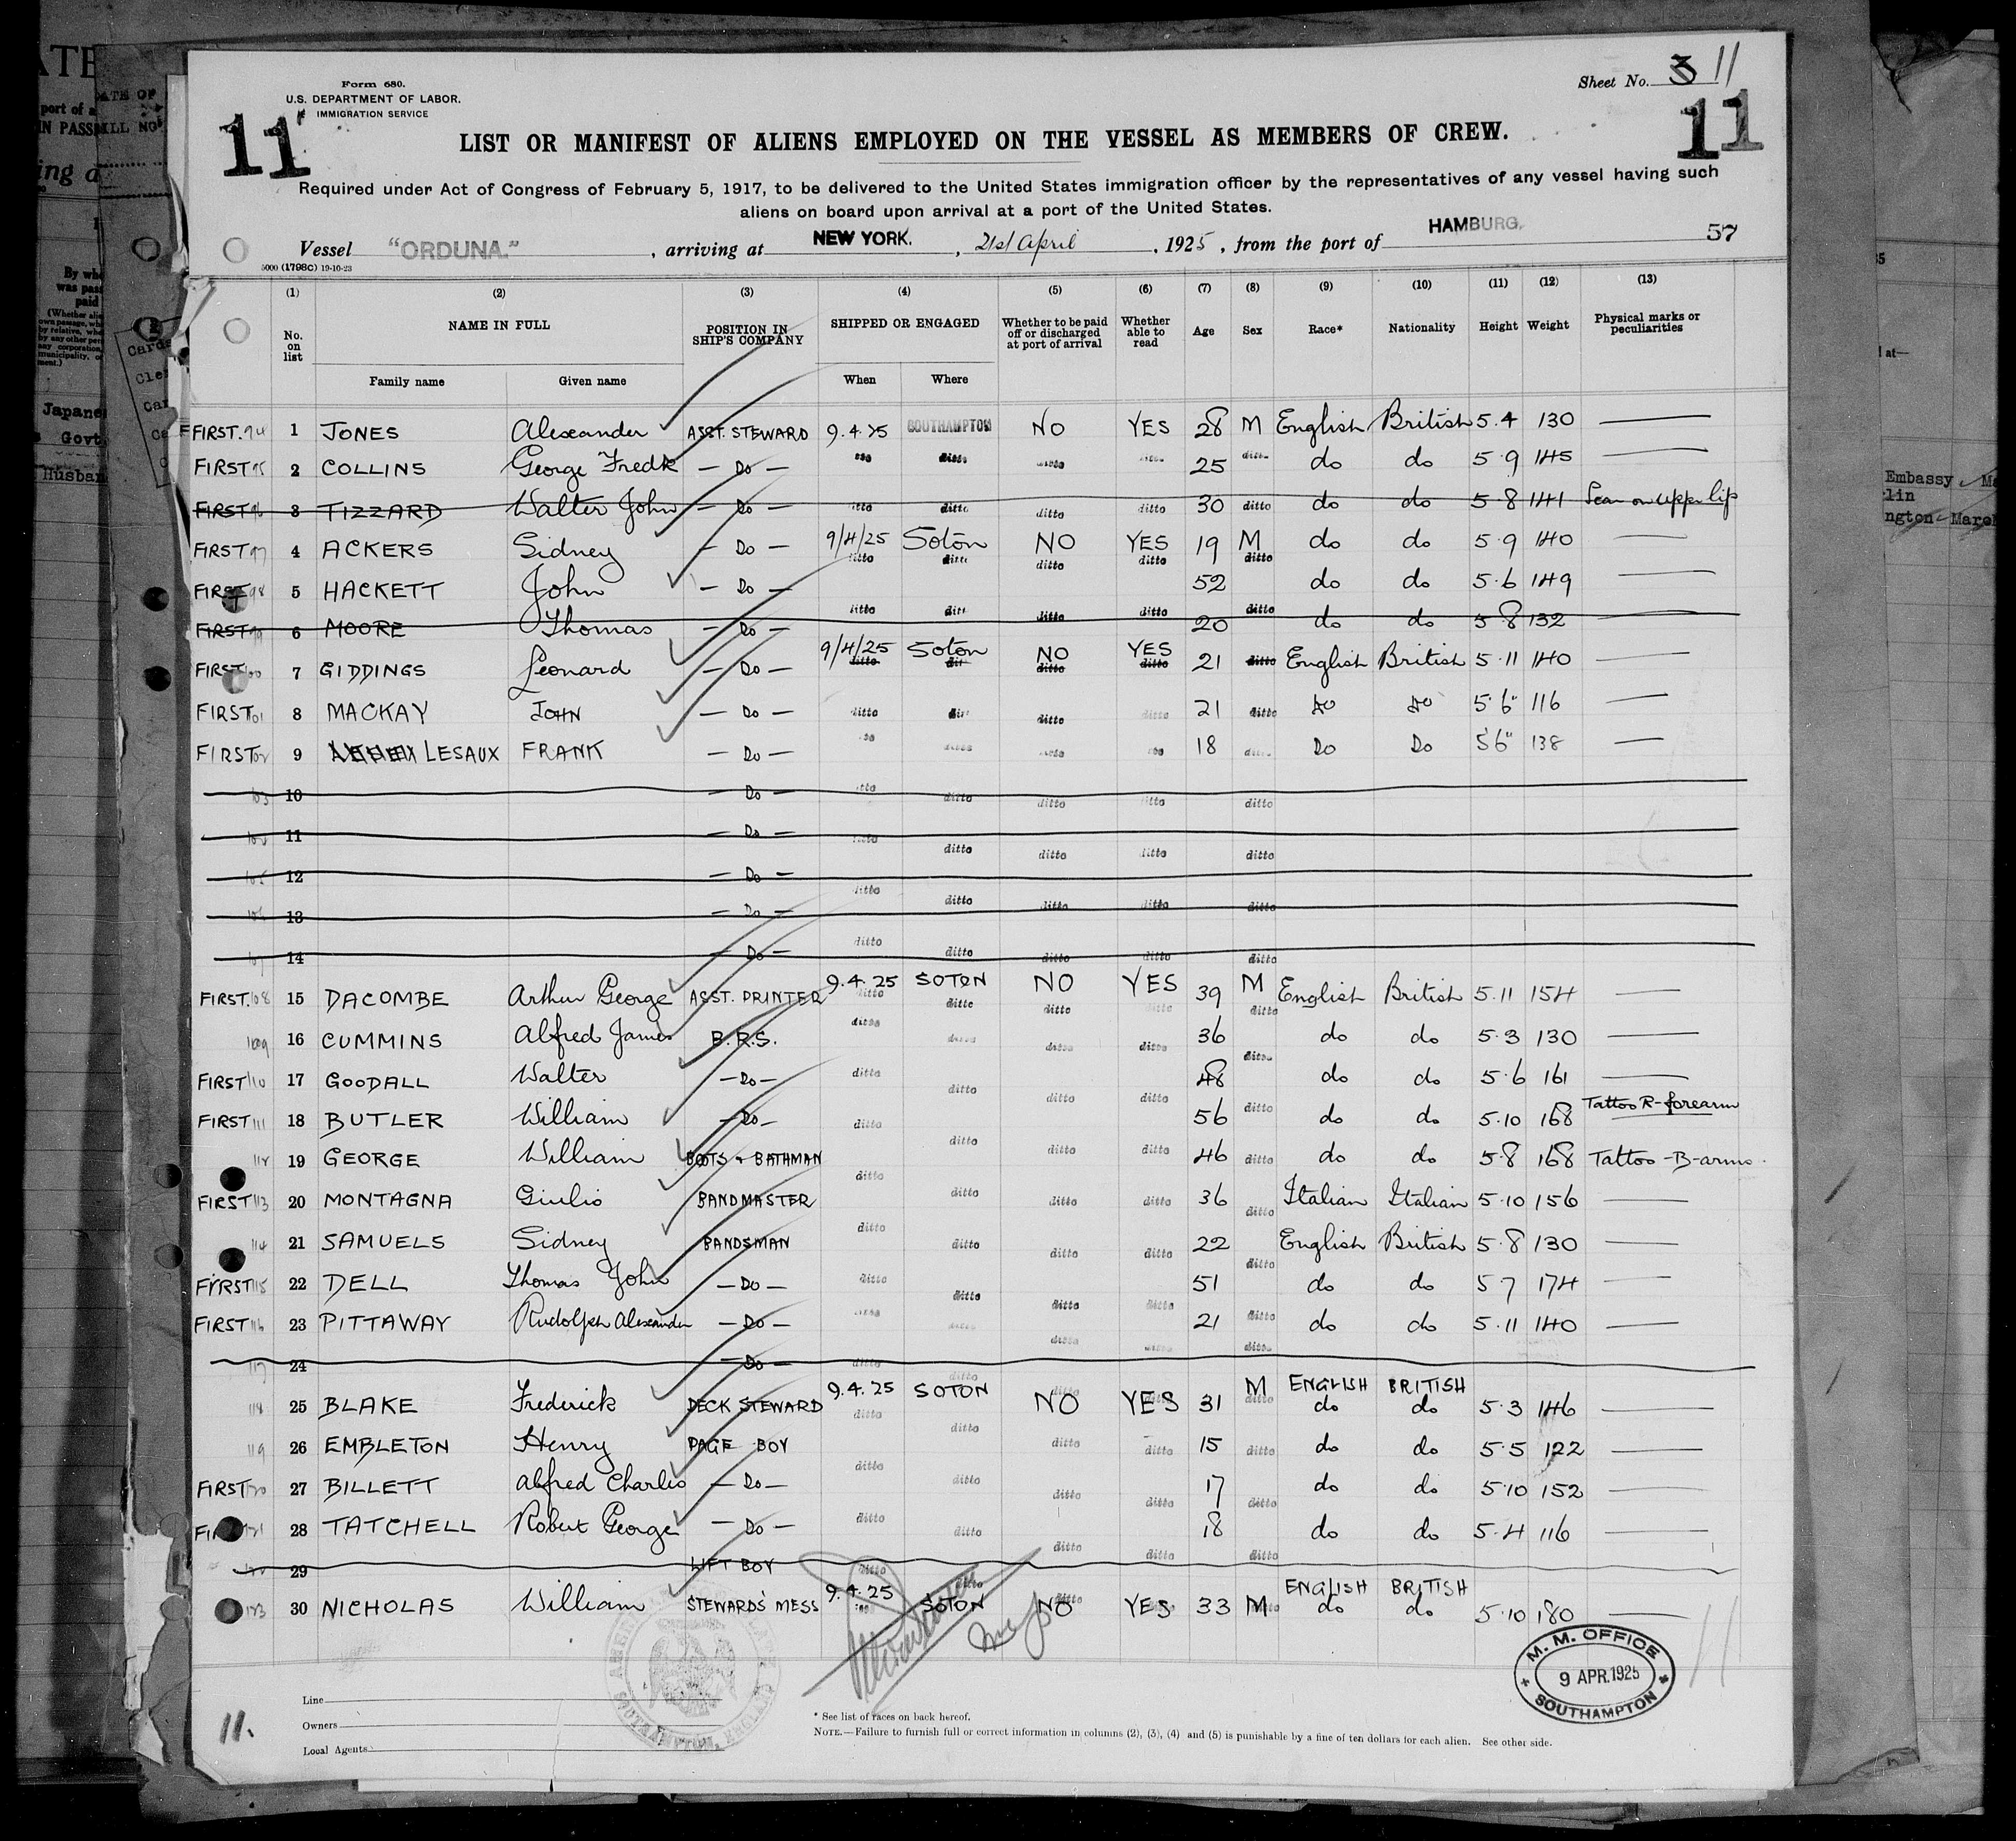 Form 680.
U.S. DEPARTMENT OF LABOR.
IMMIGRATION SERVICE
Sheet No. 3 11
11 11
LIST OR MANIFEST OF ALIENS EMPLOYED ON THE VESSEL AS MEMBERS OF CREW.
Required under Act of Congress of February 5, 1917, to be delivered to the United States immigration officer by the representatives of any vessel having such
aliens on board upon arrival at a port of the United States.
Vessel "ORDUNA." , arriving at NEW YORK. , 21st April , 1925 , from the port of HAMBURG. 57
5000 (1798C) 19-10-23
(1) (2) (3) (4) (5) (6) (7) (8) (9) (10) (11) (12) (13)
No. on list NAME IN FULL POSITION IN SHIP'S COMPANY SHIPPED OR ENGAGED Whether to be paid off or discharged at port of arrival Whether able to read Age Sex Race* Nationality Height Weight Physical marks or peculiarities
Family name Given name When Where
FIRST. 94 1 JONES Alexander ASST. STEWARD 9.4.25 SOUTHAMPTON NO YES 28 M English British 5.4 130 —
FIRST 95 2 COLLINS George Fredk — Do — ditto ditto ditto ditto 25 ditto do do 5.9 145 —
FIRST 96 3 TIZZARD Walter John — Do — ditto ditto ditto ditto 30 ditto do do 5.8 141 Scar on upper lip
FIRST 97 4 ACKERS Sidney — Do — 9/4/25 Soton NO YES 19 M do do 5.9 140 —
FIRST 98 5 HACKETT John — Do — ditto ditto ditto ditto 52 ditto do do 5.6 149 —
FIRST 99 6 MOORE Thomas — Do — ditto ditto ditto ditto 20 ditto do do 5.8 132 —
FIRST 100 7 GIDDINGS Leonard — Do — 9/4/25 ditto Soton ditto NO ditto YES ditto 21 ditto English British 5.11 140 —
FIRST 101 8 MACKAY JOHN — Do — ditto ditto ditto ditto 21 ditto do do 5.6" 116 —
FIRST 102 9 LESAUX FRANK — Do — ditto ditto ditto ditto 18 ditto Do Do 5'6" 138 —
103 10 — Do — ditto ditto ditto ditto ditto
11 — Do — ditto ditto ditto ditto ditto
105 12 — Do — ditto ditto ditto ditto ditto
106 13 — Do — ditto ditto ditto ditto
107 14 — Do — ditto ditto ditto ditto ditto
FIRST. 108 15 DACOMBE Arthur George ASST. PRINTER 9.4.25 ditto SOTON ditto NO ditto YES 39 M ditto English British 5.11 154 —
109 16 CUMMINS Alfred James B.R.S. ditto ditto ditto ditto 36 ditto do do 5.3 130 —
FIRST 110 17 GOODALL Walter — Do — ditto ditto ditto ditto 48 do do 5.6 161 —
FIRST 111 18 BUTLER William — Do — ditto ditto ditto ditto 56 ditto do do 5.10 168 Tattoo R-forearm
112 19 GEORGE William BOOTS & BATHMAN ditto ditto ditto ditto 46 ditto do do 5.8 168 Tattoo-B-arms.
FIRST 113 20 MONTAGNA Giulio BANDMASTER ditto ditto ditto ditto 36 ditto Italian Italian 5.10 156 —
114 21 SAMUELS Sidney BANDSMAN ditto ditto ditto ditto 22 ditto English British 5.8 130 —
FIRST 115 22 DELL Thomas John — Do — ditto ditto ditto ditto 51 do do 5 7 174 —
FIRST 116 23 PITTAWAY Rudolph Alexander — Do — ditto ditto ditto ditto 21 ditto do do 5.11 140 —
117 24 — Do — ditto ditto ditto
118 25 BLAKE Frederick DECK STEWARD 9.4.25 ditto SOTON ditto NO ditto YES ditto 31 M ditto ENGLISH do BRITISH do 5.3 146 —
119 26 EMBLETON Henry PAGE BOY ditto ditto ditto ditto 15 ditto do do 5.5 122 —
FIRST 120 27 BILLETT Alfred Charles — Do — ditto ditto ditto ditto 17 ditto do do 5.10 152 —
FIRST 121 28 TATCHELL Robert George — Do — ditto ditto ditto ditto 18 ditto do do 5.4 116 —
29 LIFT BOY ditto ditto
123 30 NICHOLAS William STEWARDS' MESS 9.4.25 SOTON NO ditto YES 33 M ENGLISH do BRITISH do 5.10 180 —
M. M. OFFICE
9 APR. 1925
SOUTHAMPTON
SOUTHAMPTON, ENGLAND
11.
Line
Owners
Local Agents
* See list of races on back hereof.
NOTE.—Failure to furnish full or correct information in columns (2), (3), (4) and (5) is punishable by a fine of ten dollars for each alien. See other side.
Japane
Govt
Husban
Embassy
lin
ngton March